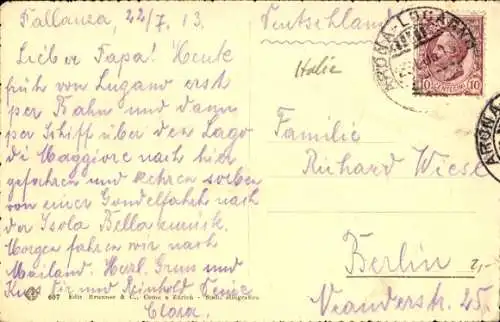 Pallanza, 22/7. 13.
Lieber Papa! Heute
früh von Lugano erst
per Bahn und dann
per Schiff über den Lago
di Maggiore nach hier
gefahren und kehren soeben
von einer Gondelfahrt nach
der Isola Bella zurück.
Morgen fahren wir nach
Mailand. Herzl. Gruss und
Kuss Dir und Reinhold Deine
Clara.
607 Edit Brunner & C., Como e Zürich - Stab. eliografico
Deutschland
Italie
ARONA-LOCARNO
10 CENTESIMI 10
ARONA
Familie
Richard Wiese
Berlin
2,-
Veanderstr. 25.